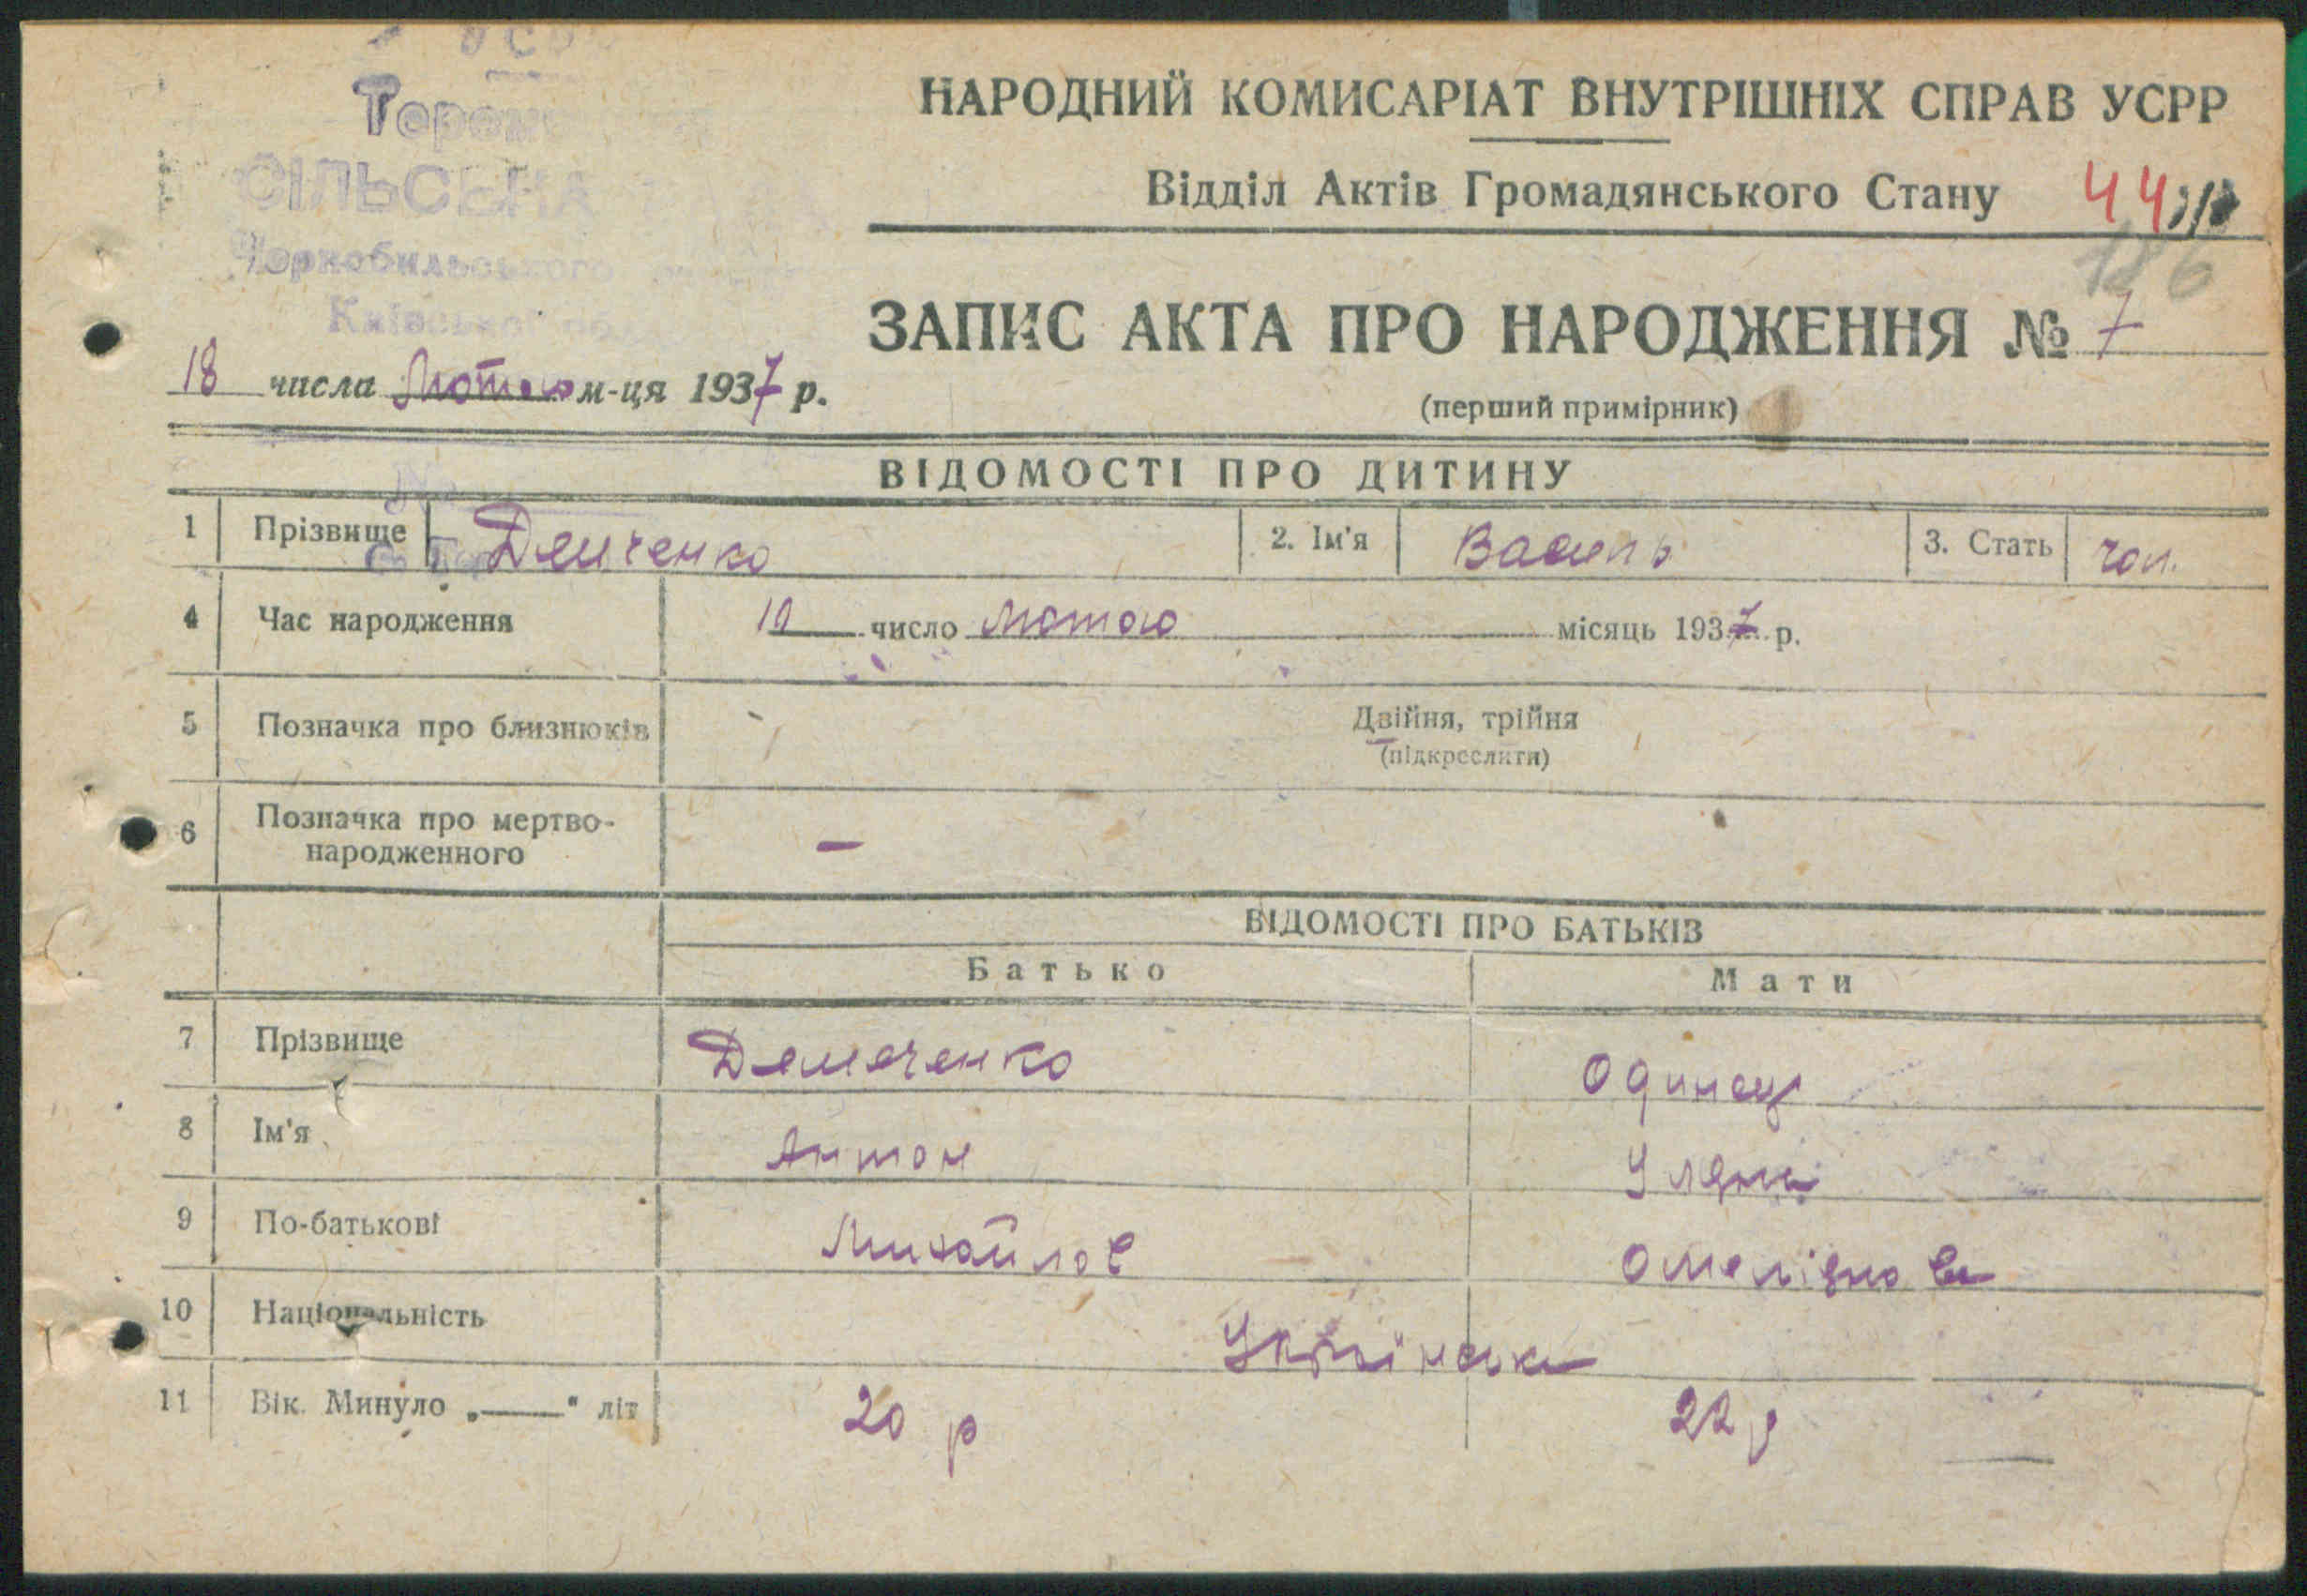 СІЛЬСЬКА
Чорнобильського
Київської
НАРОДНИЙ КОМИСАРІАТ ВНУТРІШНІХ СПРАВ УСРР
Відділ Актів Громадянського Стану 44
186
ЗАПИС АКТА ПРО НАРОДЖЕННЯ № 7
18 числа Лютого м-ця 1937 р.
(перший примірник)
ВІДОМОСТІ ПРО ДИТИНУ
1 Прізвище Демченко 2. Ім'я Василь 3. Стать чол.
4 Час народження 10 число Лютого місяць 1937 р.
5 Позначка про близнюків Двійня, трійня
(підкреслити)
6 Позначка про мертво-
народженного —
ВІДОМОСТІ ПРО БАТЬКІВ
Батько Мати
7 Прізвище Демеченко Одинец
8 Ім'я Антон Уляна
9 По-батькові Михайлов
10 Національність
11 Вік. Минуло „——" літ 20 р 22 р